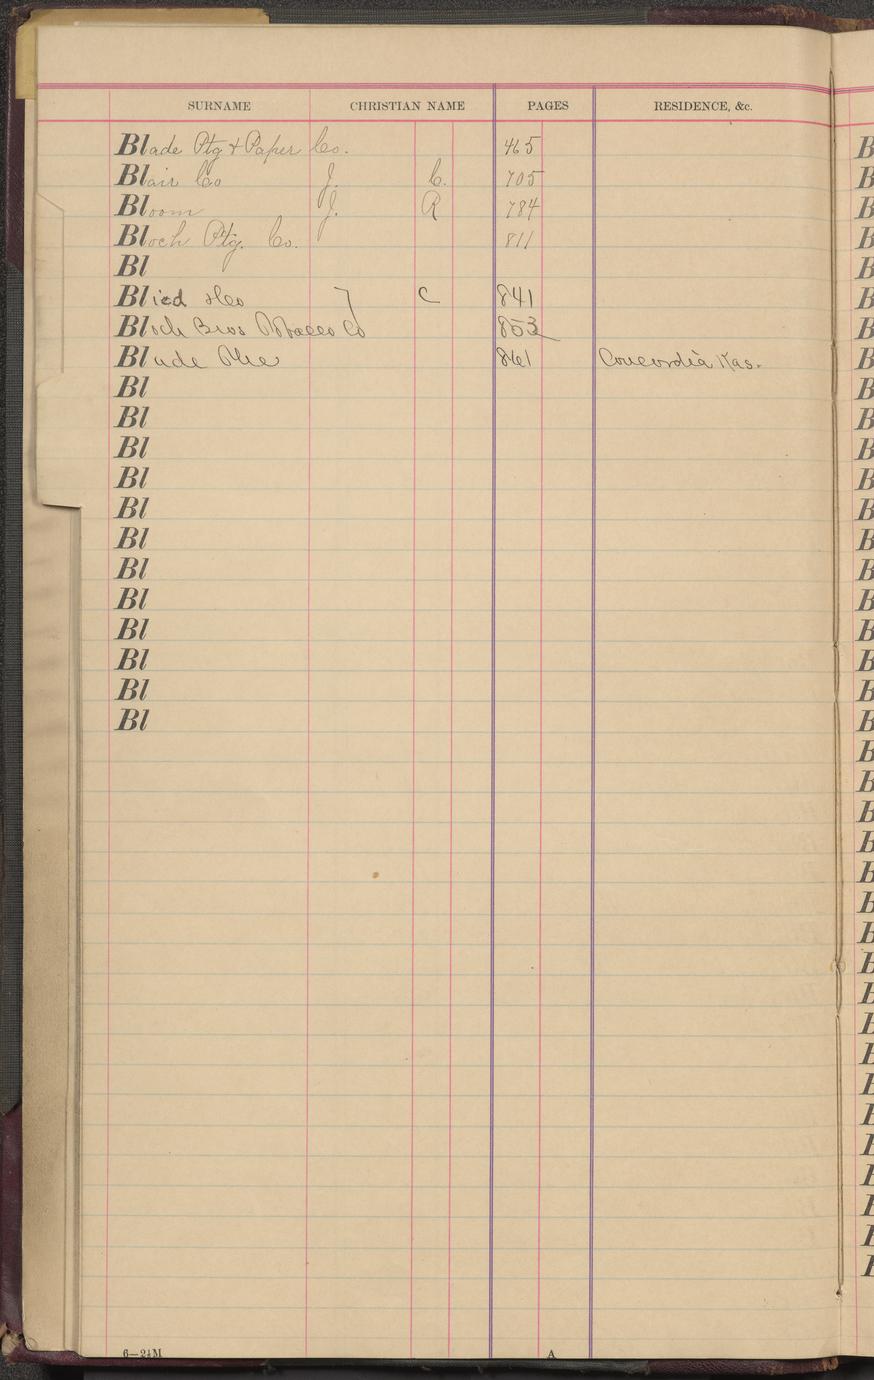 SURNAME CHRISTIAN NAME PAGES RESIDENCE, &c.
Blade Ptg & Paper Co. 465
Blair Co J. C. 705
Bloom J. R 784
Bloch Ptg. Co. 811
Bl
Blied C 841
Bloch Bros Tobacco Co 853
Blade The 861 Concordia Kas.
Bl
Bl
Bl
Bl
Bl
Bl
Bl
Bl
Bl
Bl
Bl
Bl
6—2½M A